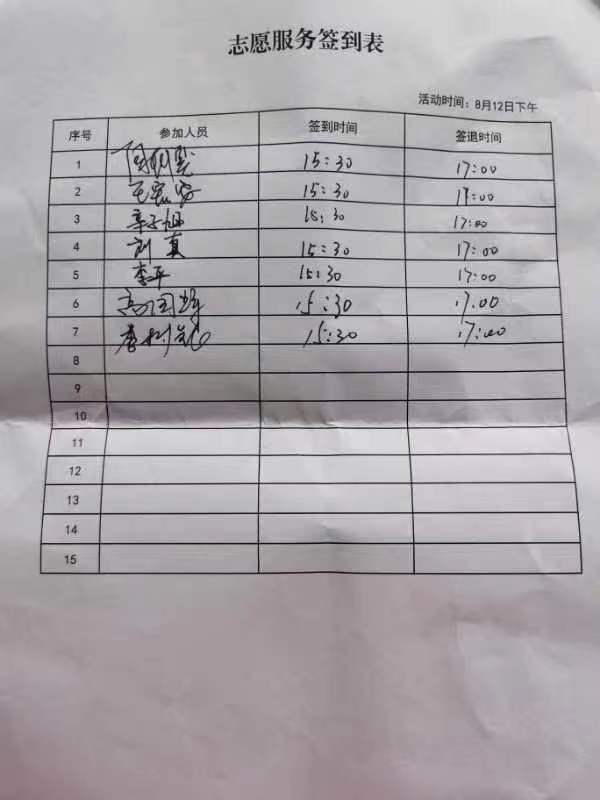 志愿服务签到表
活动时间：8月12日下午
序号 参加人员 签到时间 签退时间
1 15:30 17:00
2 王宏安 15:30 17:00
3 辛子旭 15:30 17:00
4 刘真 15:30 17:00
5 李平 15:30 17:00
6 高国 15:30 17:00
7 15:30 17:00
8
9
10
11
12
13
14
15